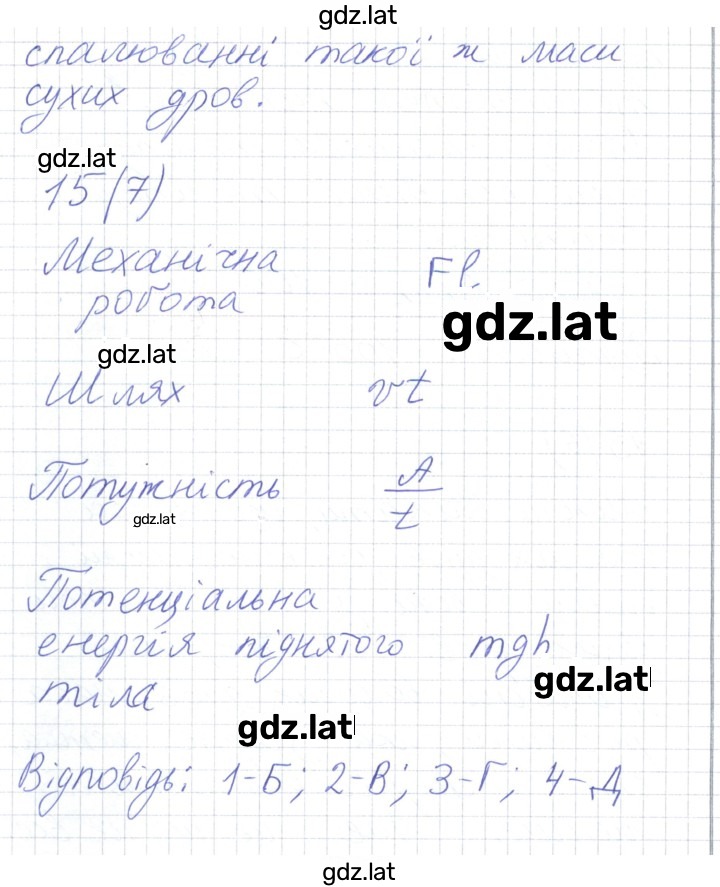 gdz.lat
спалюванні такої ж маси
сухих дров.
gdz.lat
15 (7)
Механічна
робота Fl.
gdz.lat
gdz.lat
Шлях vt
Потужність A/t
gdz.lat
Потенціальна
енергія піднятого mgh
тіла
gdz.lat
gdz.lat
Відповідь: 1-Б; 2-В; 3-Г; 4-Д
gdz.lat